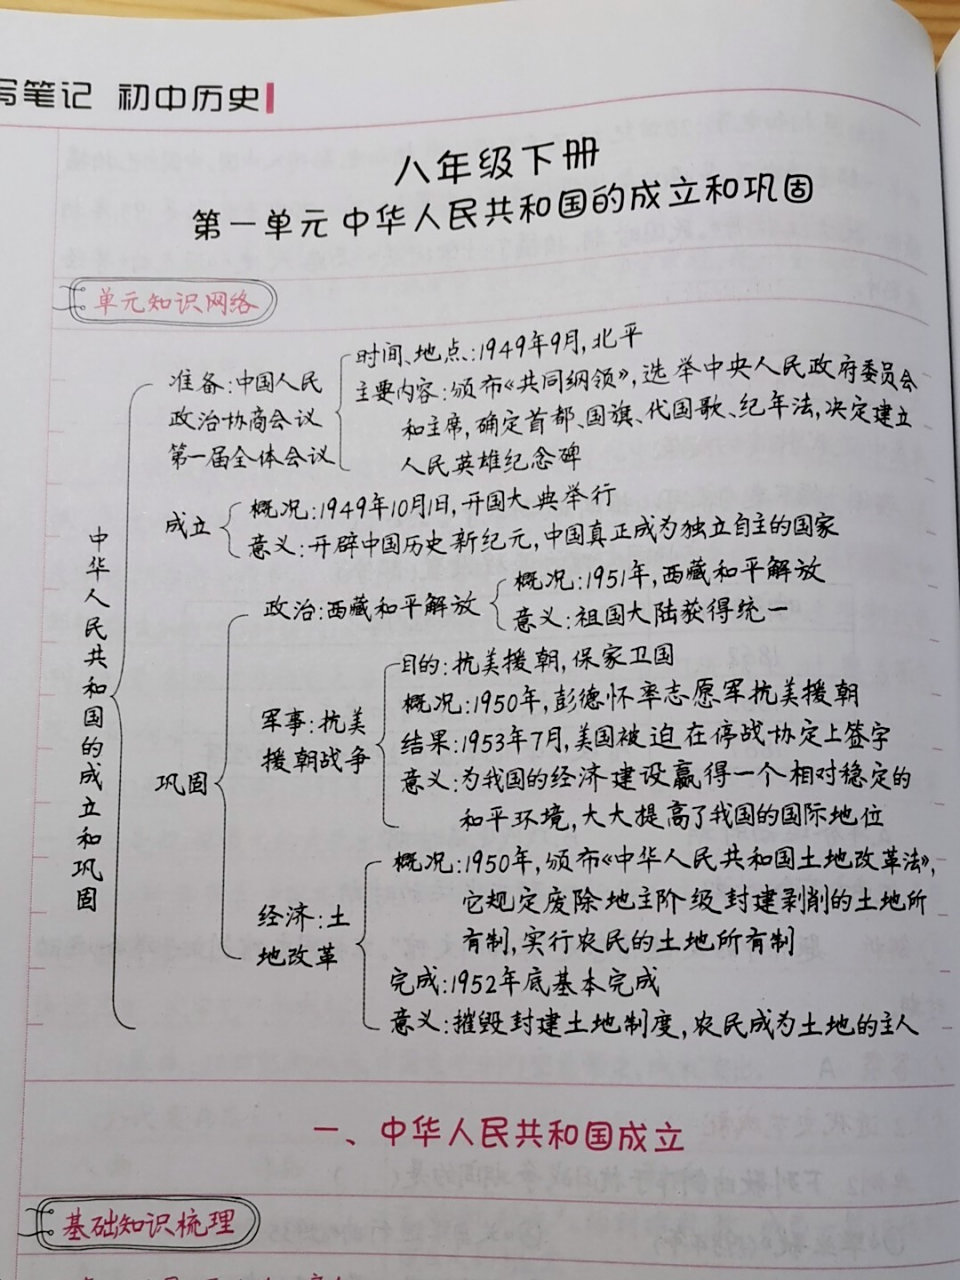 写笔记 初中历史
八年级下册
第一单元 中华人民共和国的成立和巩固
单元知识网络
中华人民共和国的成立和巩固
准备:中国人民
政治协商会议
第一届全体会议
时间、地点:1949年9月,北平
主要内容:颁布《共同纲领》,选举中央人民政府委员会
和主席,确定首都、国旗、代国歌、纪年法,决定建立
人民英雄纪念碑
成立
概况:1949年10月1日,开国大典举行
意义:开辟中国历史新纪元,中国真正成为独立自主的国家
巩固
政治:西藏和平解放
概况:1951年,西藏和平解放
意义:祖国大陆获得统一
军事:抗美
援朝战争
目的:抗美援朝,保家卫国
概况:1950年,彭德怀率志愿军抗美援朝
结果:1953年7月,美国被迫在停战协定上签字
意义:为我国的经济建设赢得一个相对稳定的
和平环境,大大提高了我国的国际地位
经济:土
地改革
概况:1950年,颁布《中华人民共和国土地改革法》,
它规定废除地主阶级封建剥削的土地所
有制,实行农民的土地所有制
完成:1952年底基本完成
意义:摧毁封建土地制度,农民成为土地的主人
一、中华人民共和国成立
基础知识梳理